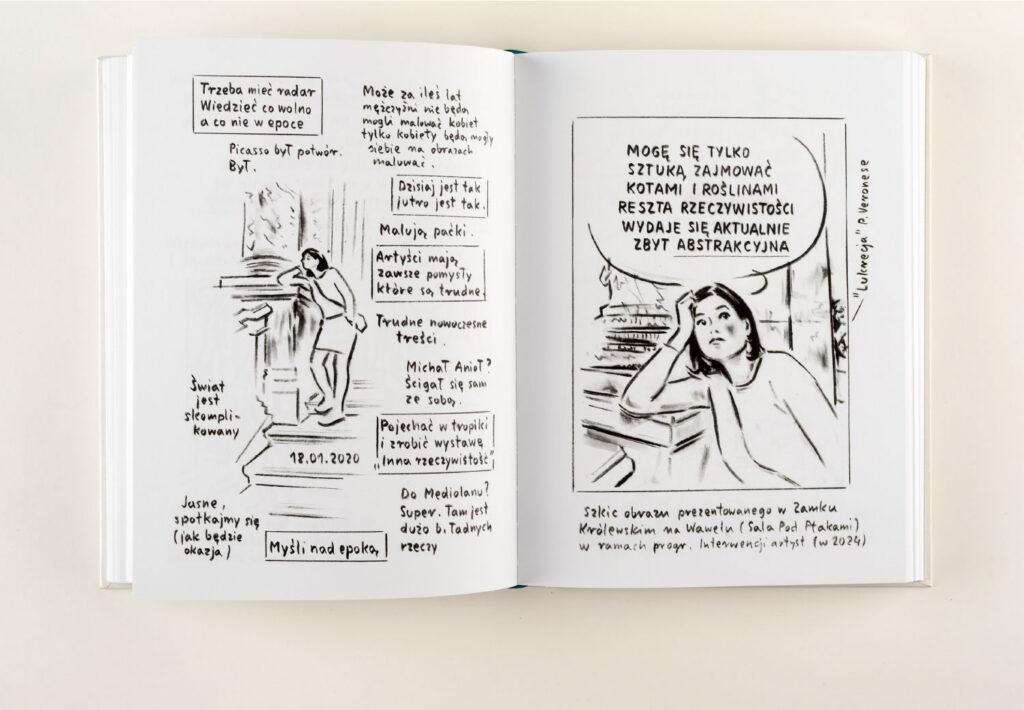 Trzeba mieć radar
Wiedzieć co wolno
a co nie w epoce
Picasso był potwór.
Był.
Może za ileś lat
mężczyźni nie będą
mogli malować kobiet
tylko kobiety będą mogły
siebie na obrazach
malować.
Dzisiaj jest tak
jutro jest tak.
Malują paćki.
Artyści mają
zawsze pomysły
które są trudne.
Trudne nowoczesne
treści.
Michał Anioł?
Ścigał się sam
ze sobą.
Świat
jest
skompli-
kowany
Pojechać w tropiki
i zrobić wystawę
„Inna rzeczywistość”
18.01.2020
Jasne,
spotkajmy się
(jak będzie
okazja)
Myśli nad epoką
Do Mediolanu?
Super. Tam jest
dużo b. ładnych
rzeczy
MOGĘ SIĘ TYLKO
SZTUKĄ ZAJMOWAĆ
KOTAMI I ROŚLINAMI
RESZTA RZECZYWISTOŚCI
WYDAJE SIĘ AKTUALNIE
ZBYT ABSTRAKCYJNA
"Lukrecja" P. Veronese
Szkic obrazu prezentowanego w Zamku
Królewskim na Wawelu (Sala Pod Ptakami)
w ramach progr. Interwencji artyst (w 2024)